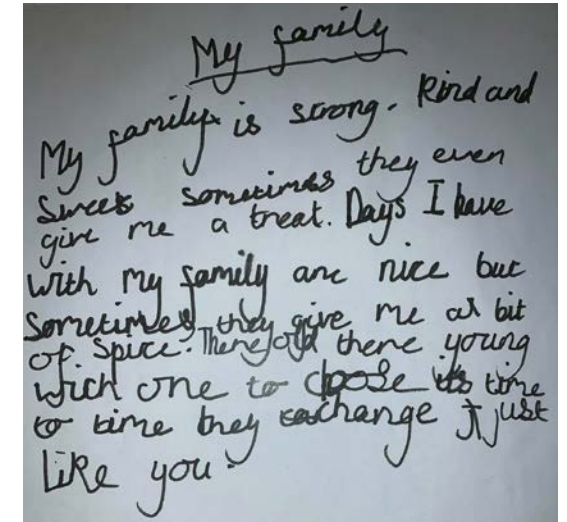 My family
My family is strong. Kind and
Sweet sometimes they even
give me a treat. Days I have
with my family are nice but
Sometimes they give me a bit
of spice. There old there young
wich one to choose its time
to time they change just
like you.